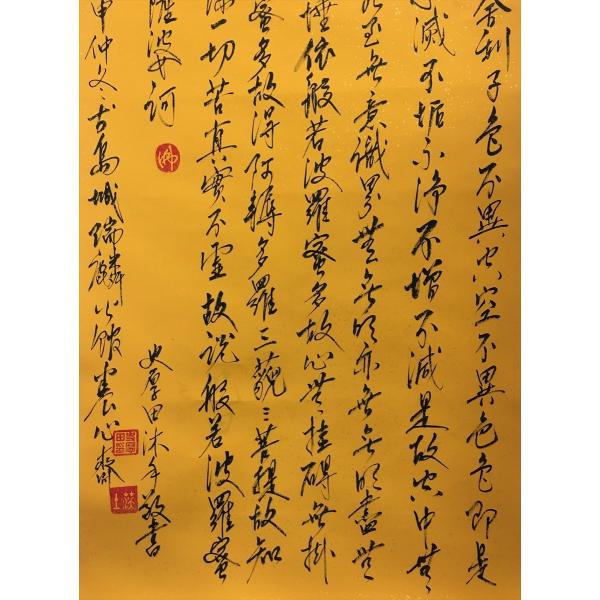 舍利子色不異空空不異色色即是
不滅不垢不淨不增不減是故空中無
乃至無意識界無無明亦無無明盡無
埵依般若波羅蜜多故心無挂碍無掛
蜜多故得阿耨多羅三藐三菩提故知
一切苦真實不虛故說般若波羅蜜
薩婆訶
佛
申仲冬於古島城瑞麟公館養心齋
史厚田沐手敬書